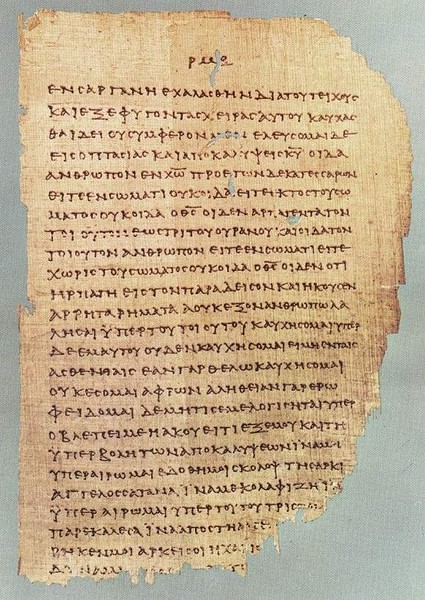 ΕΝϹΑΡΓΑΝΗΕΧΑΛΑϹΘΗΝΔΙΑΤΟΥΤΕΙΧΟΥϹ
ΚΑΙΕΞΕΦΥΓΟΝΤΑϹΧΕΙΡΑϹΑΥΤΟΥΚΑΥΧΑϹ
ΘΑΙΔΕΙΟΥϹΥΜΦΕΡΟΝ ΕΛΕΥϹΟΜΑΙΔΕ
ΕΙϹΟΠΤΑϹΙΑϹΚΑΙΑΠΟΚΑΛΥΨΕΙϹΚ̅Υ̅ΟΙΔΑ
ΑΝΘΡΩΠΟΝΕΝΧ̅Ω̅ΠΡΟΕΤΩΝΔΕΚΑΤΕϹϹΑΡΩΝ
ΕΙΤΕΕΝϹΩΜΑΤΙΟΥΚΟΙΔΑΕΙΤΕΕΚΤΟϹΤΟΥϹΩ
ΜΑΤΟϹΟΥΚΟΙΔΑΟΘ̅Ϲ̅ΟΙΔΕΝΑΡΠΑΓΕΝΤΑΤΟΝ
ΤΟΙΟΥΤΟΝΕΩϹΤΡΙΤΟΥΟΥΡΑΝΟΥΚΑΙΟΙΔΑΤΟΝ
ΤΟΙΟΥΤΟΝΑΝΘΡΩΠΟΝΕΙΤΕΕΝϹΩΜΑΤΙΕΙΤΕ
ΧΩΡΙϹΤΟΥϹΩΜΑΤΟϹΟΥΚΟΙΔΑΟΘ̅Ϲ̅ΟΙΔΕΝΟΤΙ
ΗΡΠΑΓΗΕΙϹΤΟΝΠΑΡΑΔΕΙϹΟΝΚΑΙΗΚΟΥϹΕΝ
ΑΡΡΗΤΑΡΗΜΑΤΑΑΟΥΚΕΞΟΝΑΝΘΡΩΠΩΛΑ
ΛΗϹΑΙΫΠΕΡΤΟΥΤΟΙΟΥΤΟΥΚΑΥΧΗϹΟΜΑΙΥΠΕΡ
ΔΕΕΜΑΥΤΟΥΟΥΔΕΝΚΑΥΧΗϹΟΜΑΙΕΙΜΗΕΝΤΑΙϹ
ΑϹΘΕΝΕΙΑΙϹΕΑΝΓΑΡΘΕΛΩΚΑΥΧΗϹΟΜΑΙ
ΟΥΚΕϹΟΜΑΙΑΦΡΩΝΑΛΗΘΕΙΑΝΓΑΡΕΡΩ
ΦΕΙΔΟΜΑΙΔΕΜΗΤΙϹΕΜΕΛΟΓΙϹΗΤΑΙΥΠΕΡ
ΟΒΛΕΠΕΙΜΕΗΑΚΟΥΕΙΤΙΕΞΕΜΟΥΚΑΙΤΗ
ΫΠΕΡΒΟΛΗΤΩΝΑΠΟΚΑΛΥΨΕΩΝΪΝΑΜΗ
ΥΠΕΡΑΙΡΩΜΑΙΕΔΟΘΗΜΟΙϹΚΟΛΟΨΤΗϹΑΡΚΙ
ΑΓΓΕΛΟϹϹΑΤΑΝΑΪΝΑΜΕΚΟΛΑΦΙΖΗΪΝΑ
ΫΠΕΡΑΙΡΩΜΑΙΥΠΕΡΤΟΥΤΟΥΤΡΙϹ
ΠΑΡΕΚΑΛΕϹΑΪΝΑΑΠΟϹΤΗ
ΡΗΚΕΝΜΟΙΑΡΚΕΙϹΟΙΗΧΑΡΙϹ
ΔΥΝΑΜΙϹ